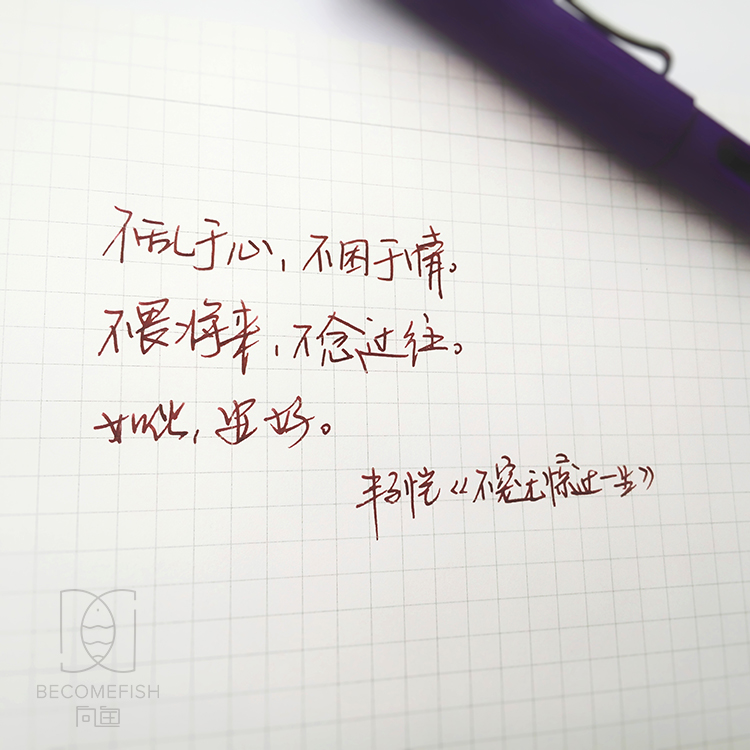 不乱于心，不困于情。
不畏将来，不念过往。
如此，安好。
丰子恺《不宠无惊过一生》
BECOMEFISH
向鱼